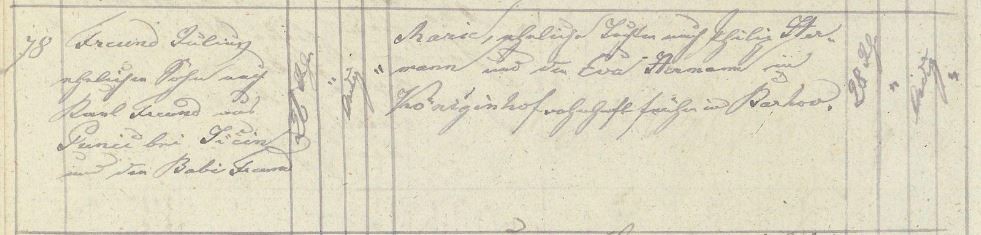 78
Freund Julius
ehelicher Sohn nach
Karl Freund aus
bei Jičin
und der Babi Freund
Marie, eheliche Tochter nach Philip Her-
mann und der Eva Hermann in
Königinhof wohnhaft früher in
ledig
28
ledig